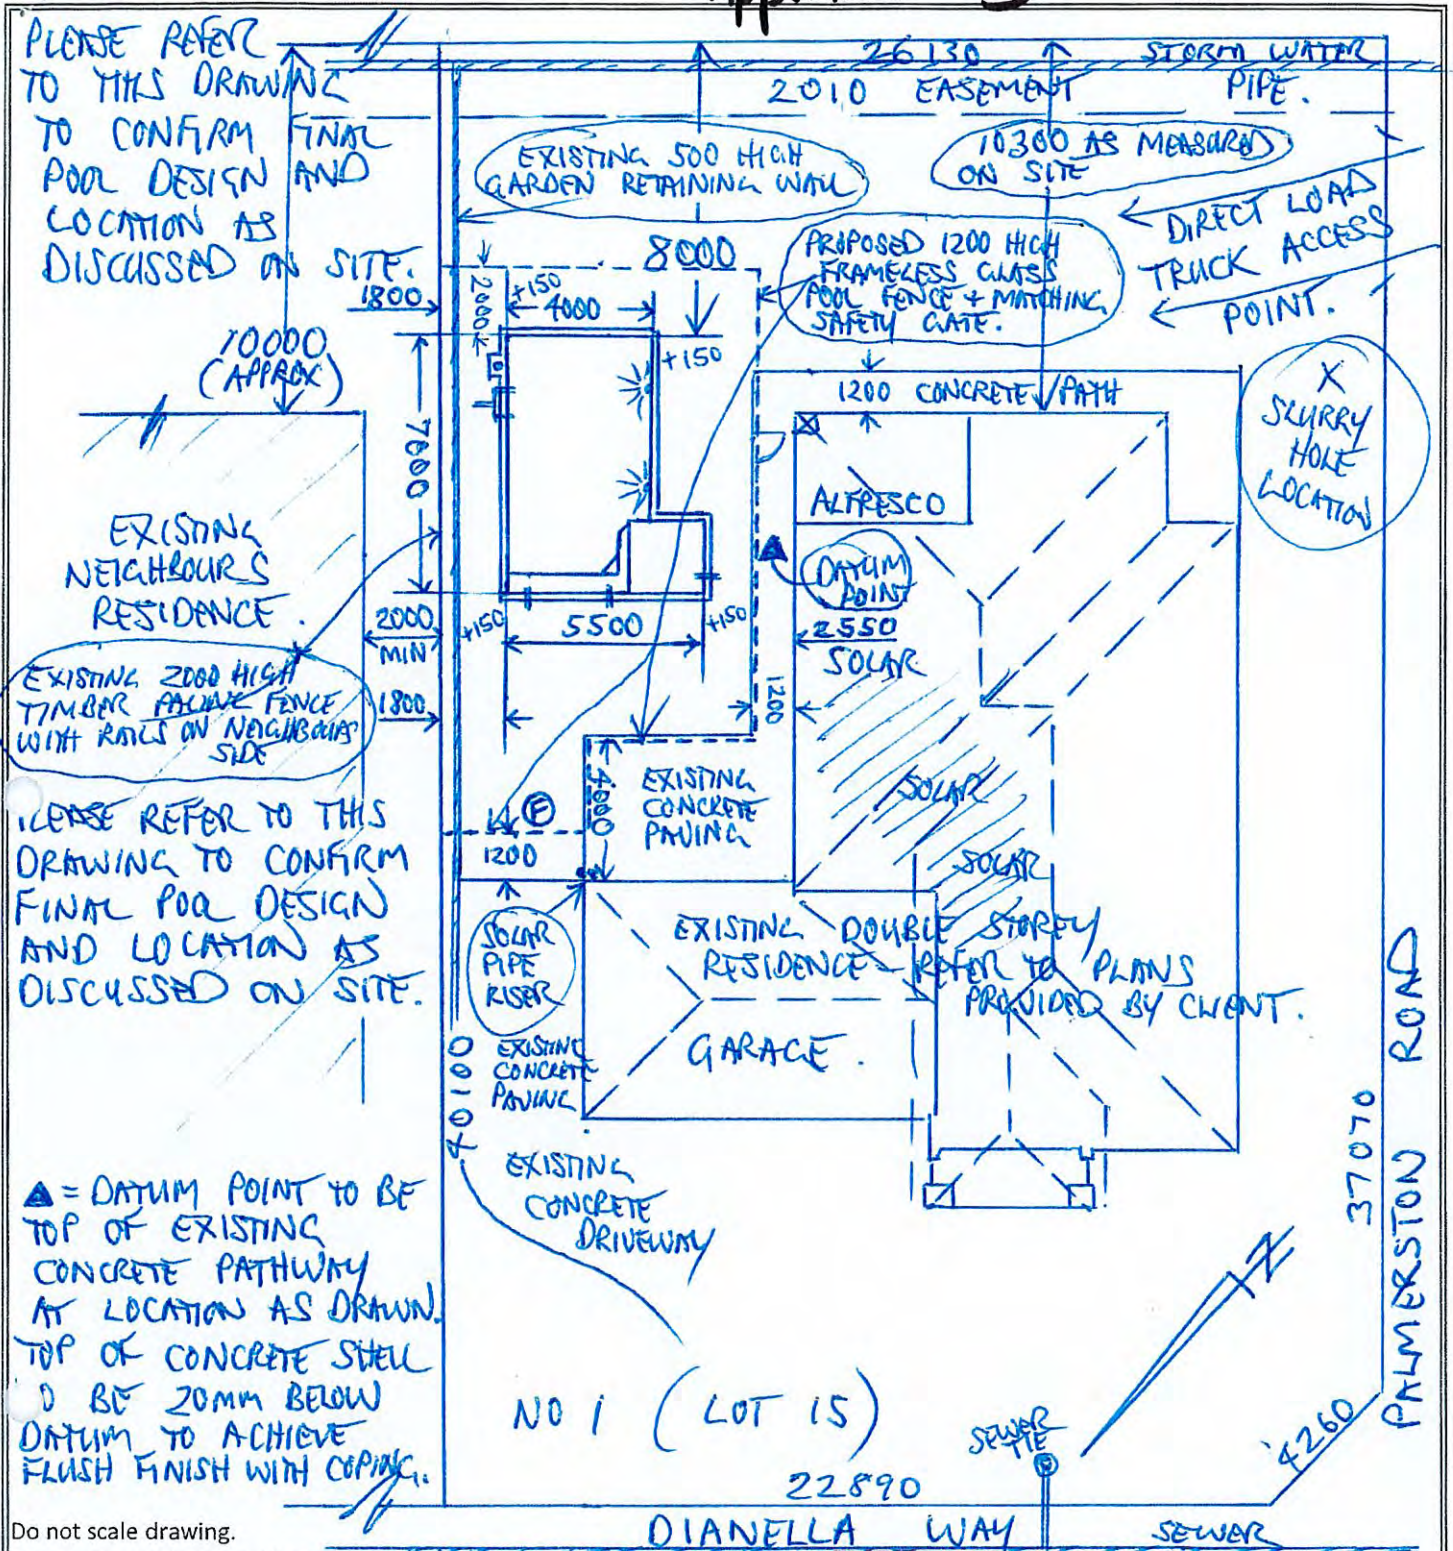 PLEASE REFER
TO THIS DRAWING
TO CONFIRM FINAL
POOL DESIGN AND
LOCATION AS
DISCUSSED ON SITE.
26130
STORM WATER
PIPE.
2010 EASEMENT
EXISTING 500 HIGH
GARDEN RETAINING WALL
10300 AS MEASURED
ON SITE
DIRECT LOAD
TRUCK ACCESS
POINT.
8000
PROPOSED 1200 HIGH
FRAMELESS GLASS
POOL FENCE + MATCHING
SAFETY GATE.
1800
2000
+150
4000
+150
10000
(APPROX)
7000
1200 CONCRETE PATH
X
SLURRY
HOLE
LOCATION
ALFRESCO
EXISTING
NEIGHBOURS
RESIDENCE.
DATUM
POINT
2000
MIN
+150
5500
+150
2550
SOLAR
EXISTING 2000 HIGH
TIMBER PALING FENCE
WITH RAILS ON NEIGHBOURS
SIDE
1800
1200
4000
EXISTING
CONCRETE
PAVING
SOLAR
F
1200
SOLAR
PLEASE REFER TO THIS
DRAWING TO CONFIRM
FINAL POOL DESIGN
AND LOCATION AS
DISCUSSED ON SITE.
SOLAR
PIPE
RISER
EXISTING DOUBLE STOREY
RESIDENCE - REFER TO PLANS
PROVIDED BY CLIENT.
GARAGE.
EXISTING
CONCRETE
PAVING
40100
EXISTING
CONCRETE
DRIVEWAY
37070
PALMERSTON ROAD
= DATUM POINT TO BE
TOP OF EXISTING
CONCRETE PATHWAY
AT LOCATION AS DRAWN.
TOP OF CONCRETE SHELL
O BE 20MM BELOW
DATUM TO ACHIEVE
FLUSH FINISH WITH COPING.
N
NO 1 (LOT 15)
SEWER
TIE
4260
22890
Do not scale drawing.
DIANELLA WAY
SEWER